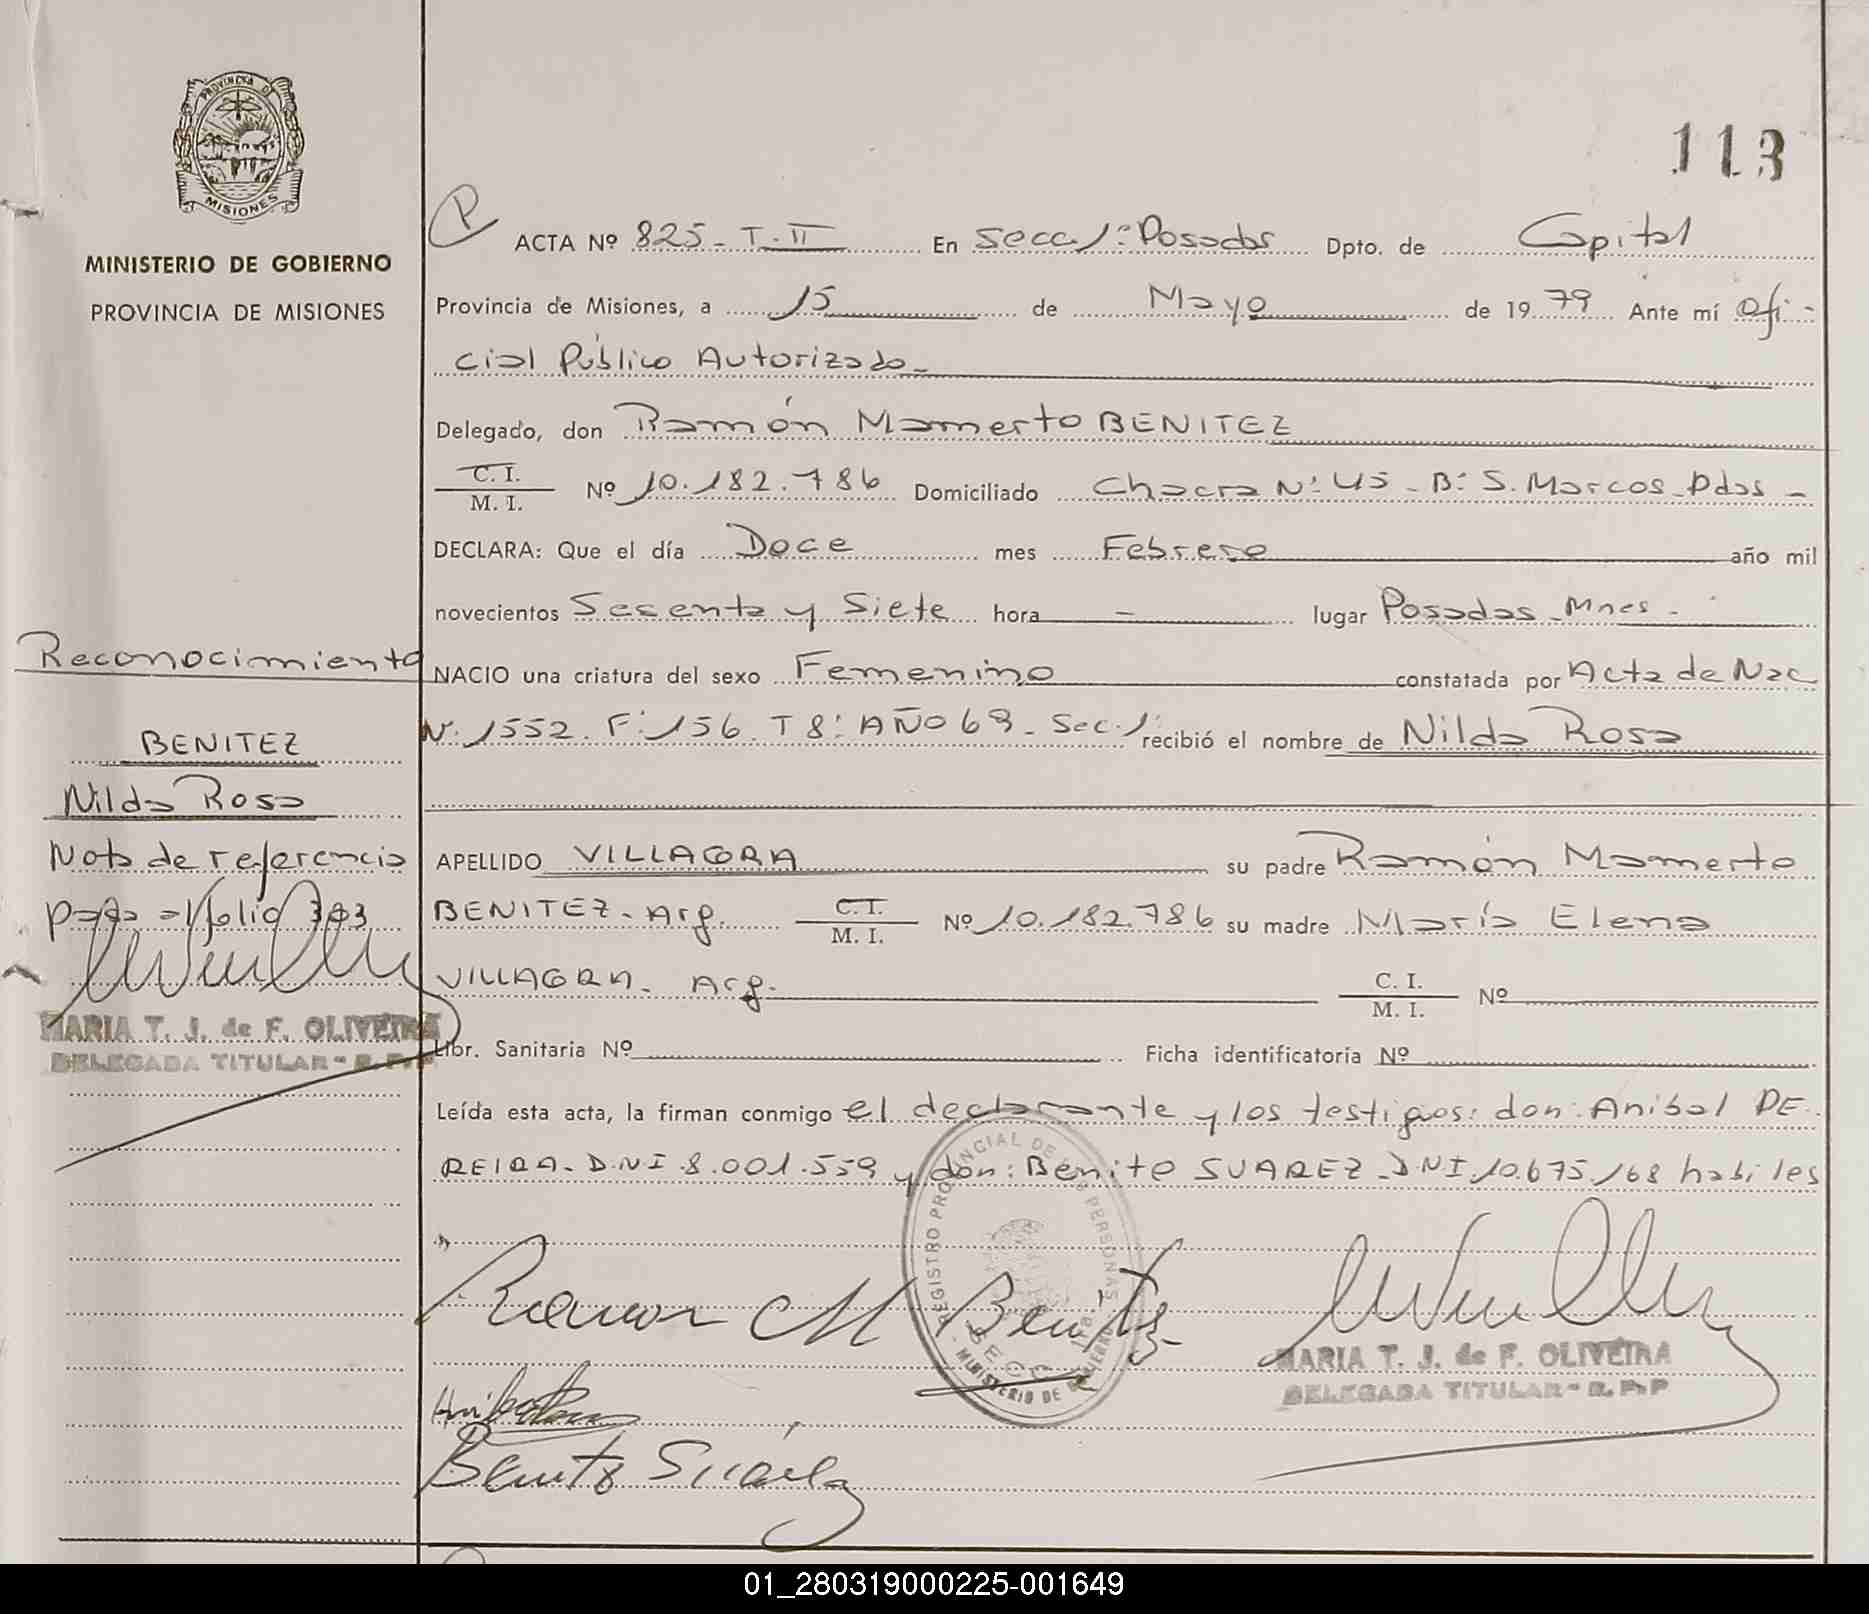 PROVINCIA DE
MISIONES
MINISTERIO DE GOBIERNO
PROVINCIA DE MISIONES
113
P
ACTA Nº 825 - T. II En Secc. 1ª Posadas Dpto. de Capital
Provincia de Misiones, a 15 de Mayo de 1979 Ante mí Ofi-
cial Público Autorizado -
Delegado, don Ramón Mamerto BENITEZ
C. I.
M. I. Nº 10.182.786 Domiciliado Chacra Nº 45 - Bº S. Marcos - Pdas -
DECLARA: Que el día Doce mes Febrero año mil
novecientos Sesenta y Siete hora - lugar Posadas - Mnes -
Reconocimiento
NACIO una criatura del sexo Femenino constatada por Acta de Nac
Nº 1552. Fº 156. T 8º AÑO 69 - Sec. 1ª recibió el nombre de Nilda Rosa
BENITEZ
Nilda Rosa
Nota de referencia
pasa al folio 393
MARIA T. J. de F. OLIVEIRA
DELEGADA TITULAR - R. P. P
APELLIDO VILLAGRA su padre Ramón Mamerto
BENITEZ - Arg. C. I.
M. I. Nº 10.182.786 su madre María Elena
VILLAGRA - Arg. C. I.
M. I. Nº
Libr. Sanitaria Nº Ficha identificatoria Nº
Leída esta acta, la firman conmigo el declarante y los testigos: don: Anibal PE-
REIRA - D.N.I. 8.001.559 y don: Benito SUAREZ - DNI. 10.675.168 habiles
REGISTRO PROVINCIAL DE LAS PERSONAS
SECC. 1ra.
- MINISTERIO DE GOBIERNO -
Ramon M Benitez
MARIA T. J. de F. OLIVEIRA
DELEGADA TITULAR - R. P. P
Benito Suárez
01_280319000225-001649